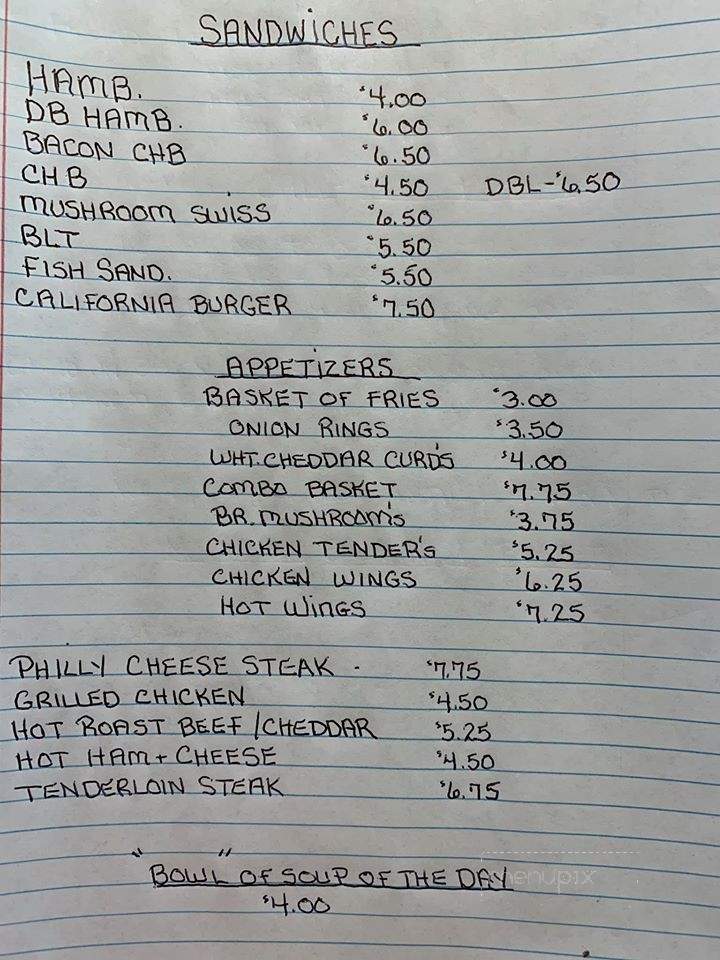 SANDWICHES
HAMB. $4.00
DB HAMB. $6.00
BACON CHB $6.50
CHB $4.50 DBL-$6.50
MUSHROOM SWISS $6.50
BLT $5.50
FISH SAND. $5.50
CALIFORNIA BURGER $7.50
APPETIZERS
BASKET OF FRIES $3.00
ONION RINGS $3.50
WHT. CHEDDAR CURD'S $4.00
COMBO BASKET $7.75
BR. MUSHROOM'S $3.75
CHICKEN TENDER'S $5.25
CHICKEN WINGS $6.25
HOT WINGS $7.25
PHILLY CHEESE STEAK - $7.75
GRILLED CHICKEN $4.50
HOT ROAST BEEF/CHEDDAR $5.25
HOT HAM + CHEESE $4.50
TENDERLOIN STEAK $6.75
"BOWL" OF SOUP OF THE DAY
$4.00
menupix